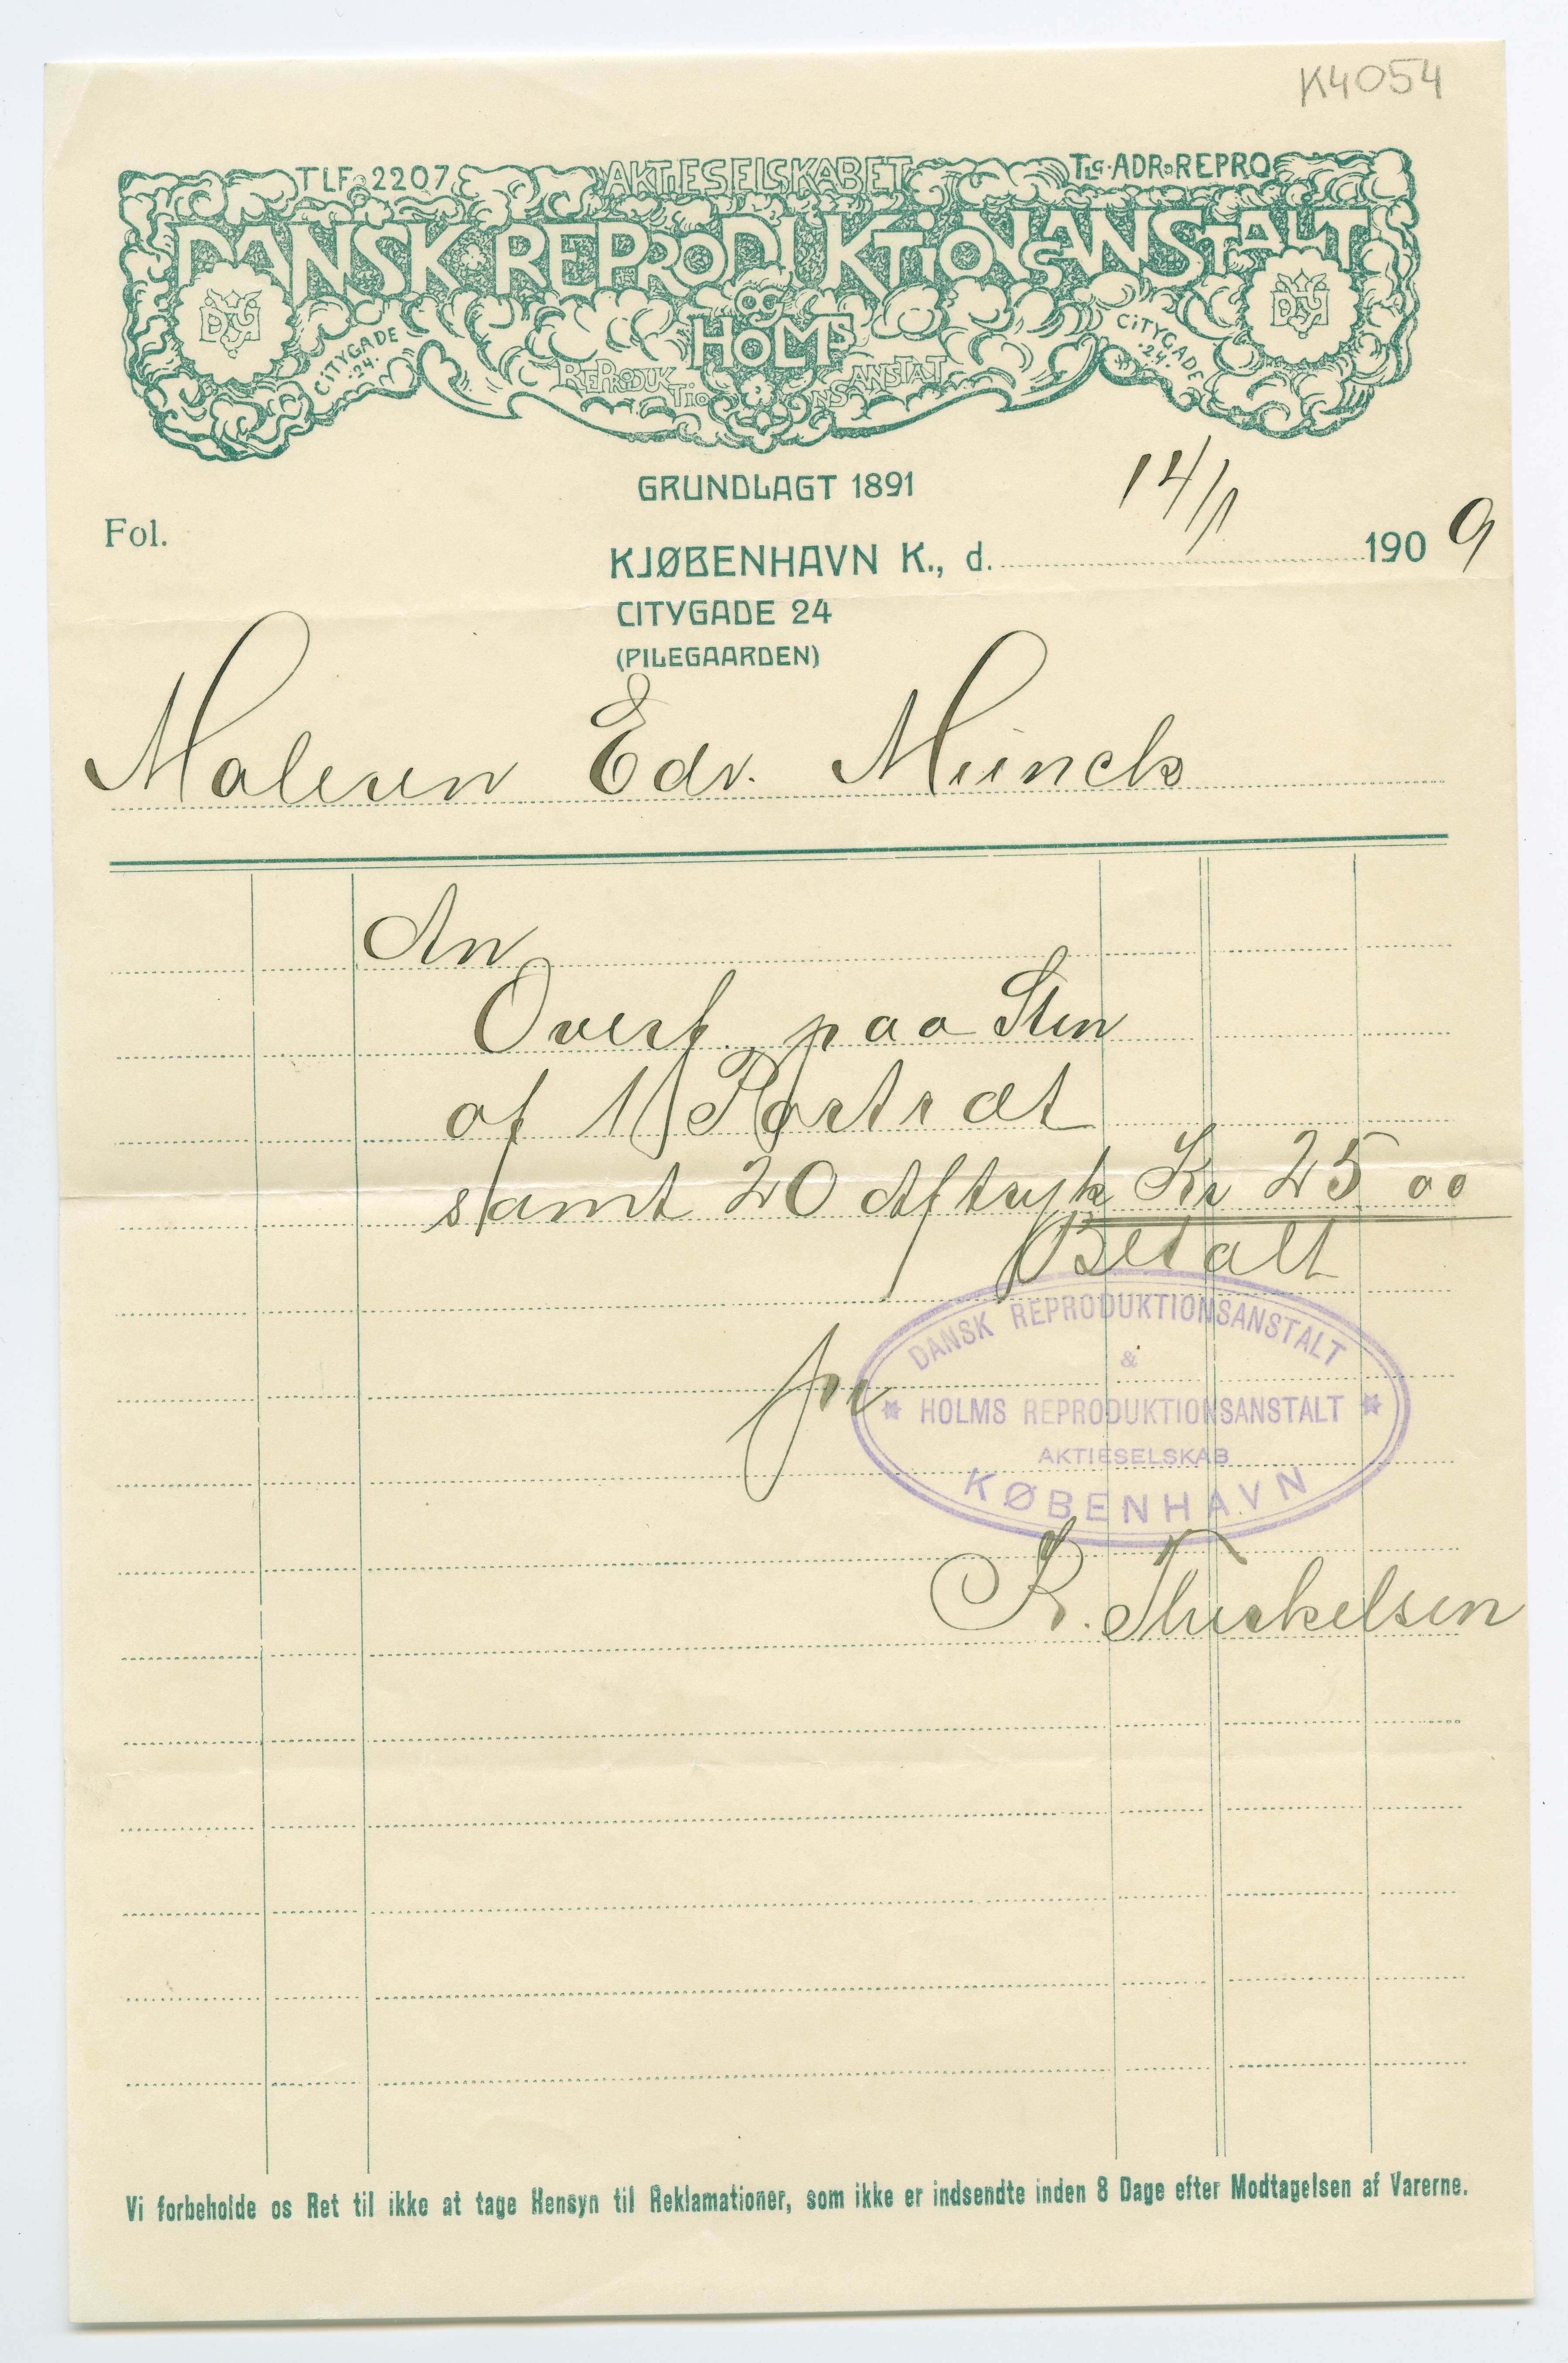 K4054
TLF. 2207
AKTIESELSKABET
TLG. ADR. REPRO
DANSK REPRODUKTIONSANSTALT
OG
HOLMS
REPRODUKTIONSANSTALT
CITYGADE
24.
CITYGADE
24.
GRUNDLAGT 1891
Fol.
KJØBENHAVN K., d. 14/1 1909
CITYGADE 24
(PILEGAARDEN)
Maleren Edv. Münck
An
Overf. paa Sten
af 1 Portræt
samt 20 Aftryk Kr 25 00
Betalt
pr
DANSK REPRODUKTIONSANSTALT
&
HOLMS REPRODUKTIONSANSTALT
AKTIESELSKAB
KØBENHAVN
R. Thirkelsen
Vi forbeholde os Ret til ikke at tage Hensyn til Reklamationer, som ikke er indsendte inden 8 Dage efter Modtagelsen af Varerne.